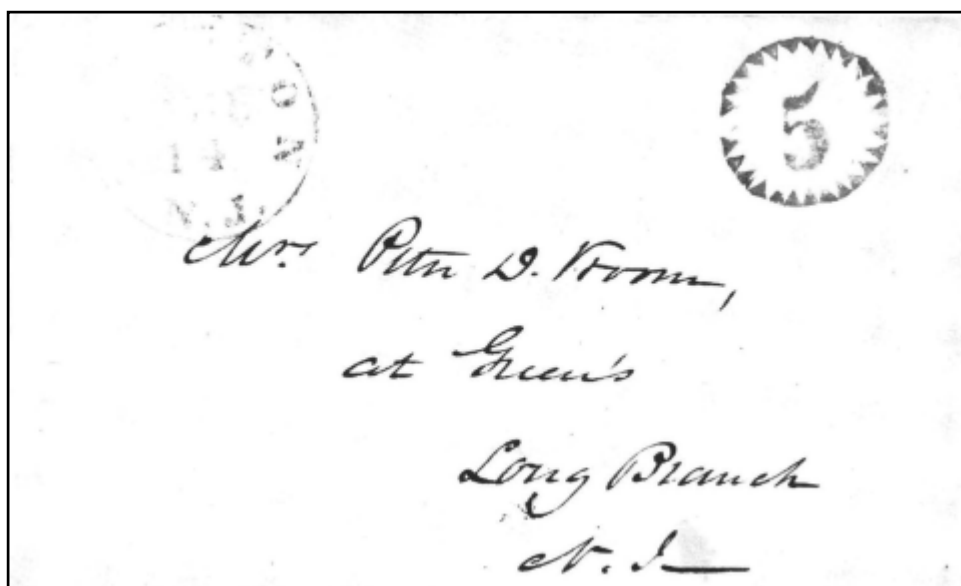 14
N.J.
5
Mrs. Peter D. Vroom,
at Green's
Long Branch
N. J